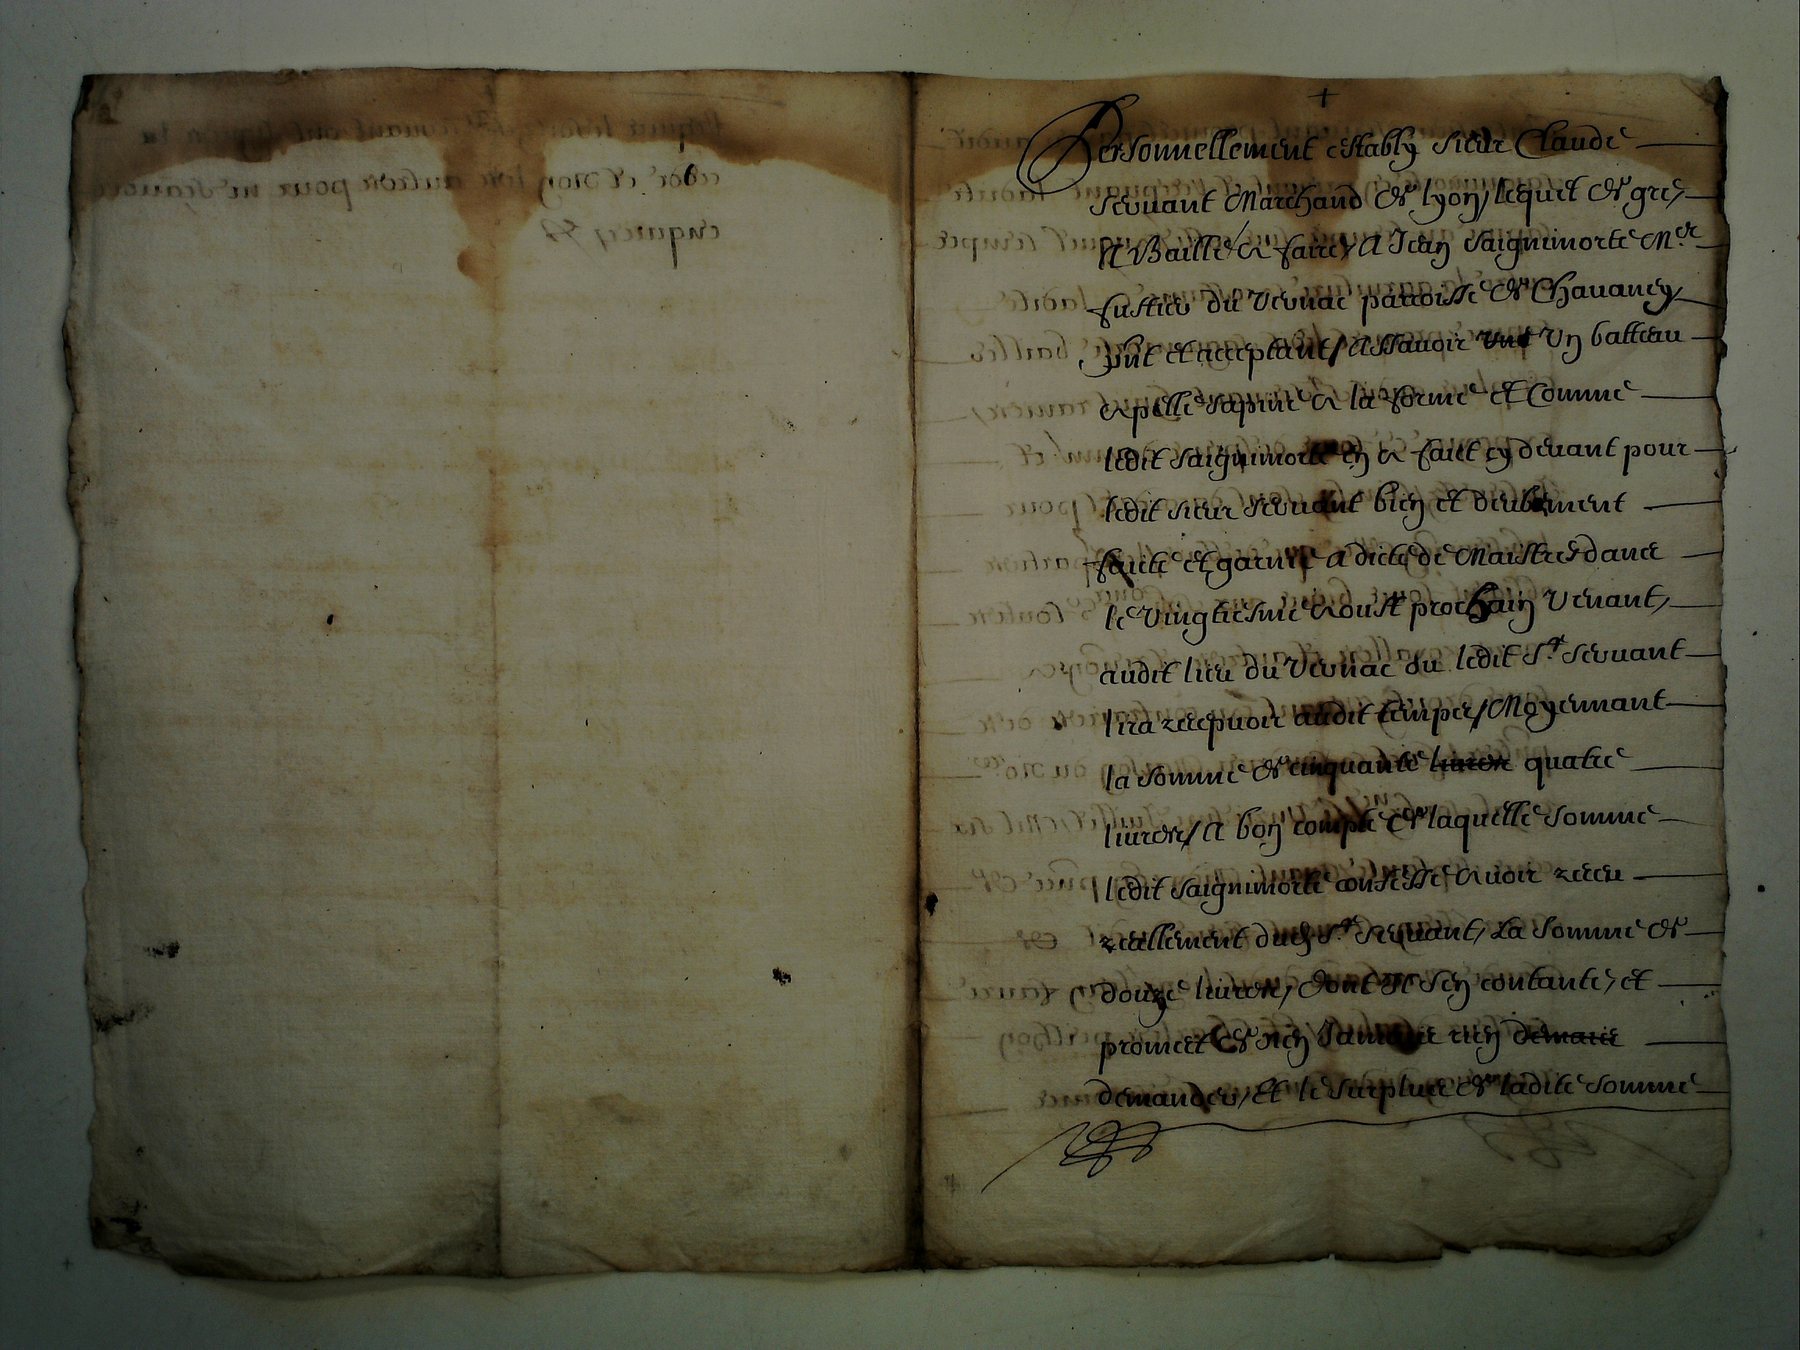 +
Personnellement estably sieur Claude
Servant Marchand de lyon, lequel de gré,
A Baillé a faire, A Jean saignimorte Mer
fustier du Vernae parroisse de Chavaney,
pnt et acceptant, Assavoir une Un batteau
apellé sapine a la forme et Comme
ledit saignimorte en a faict cy devant pour
ledit sieur servant bien et deubement
faicte et garnie A dicte de Maistres dans
le Vingtiesme Aoust prochain Venant,
audit lieu du Vernae ou ledit Sr servant
lira recepvoir audit temps, Moyennant
la somme de cinquante livres quatre
livres, A bon compte de laquelle somme
ledit saignimorte confesse avoir receu
reallement dud Sr servant, La somme de
douze livres, dont il sen contante, et
promect de nen Jamais rien
demander, Et le surplus de ladite somme